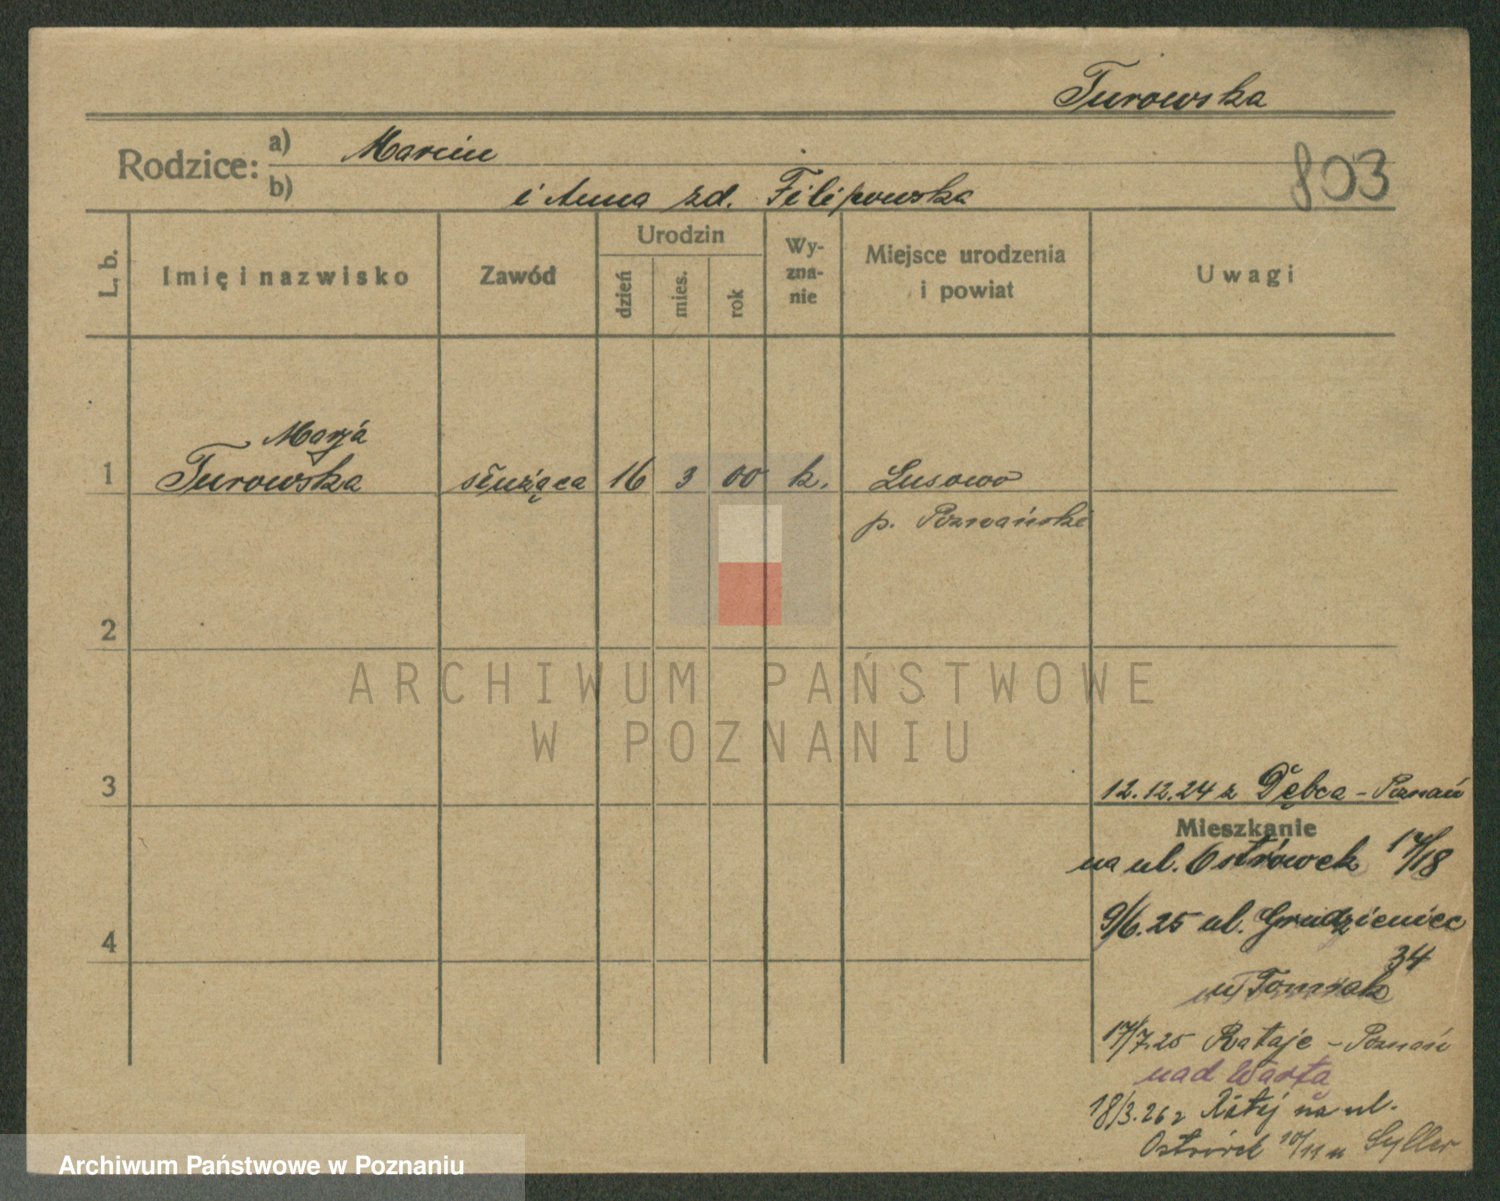 Turowska
Rodzice: a) Marcin
803
b) i Anna zd. Filipowska
L. b.
Imię i nazwisko
Zawód
Urodzin
dzień
mies.
rok
Wy-
zna-
nie
Miejsce urodzenia
i powiat
Uwagi
Marja
1 Turowska służąca 16 3 00 k. Lusowo
p. Poznański
2
ARCHIWUM PAŃSTWOWE
W POZNANIU
3
12.12.24 z Dębca - Poznań
Mieszkanie
na ul. Ostrówek 17/18
9/6.25 ul. Grudzieniec
34
4
u Tomiak
17/7.25 Rataje - Poznań
nad Wartą
18/3.26 z Rataj na ul.
Ostrówek 10/11 u
Archiwum Państwowe w Poznaniu